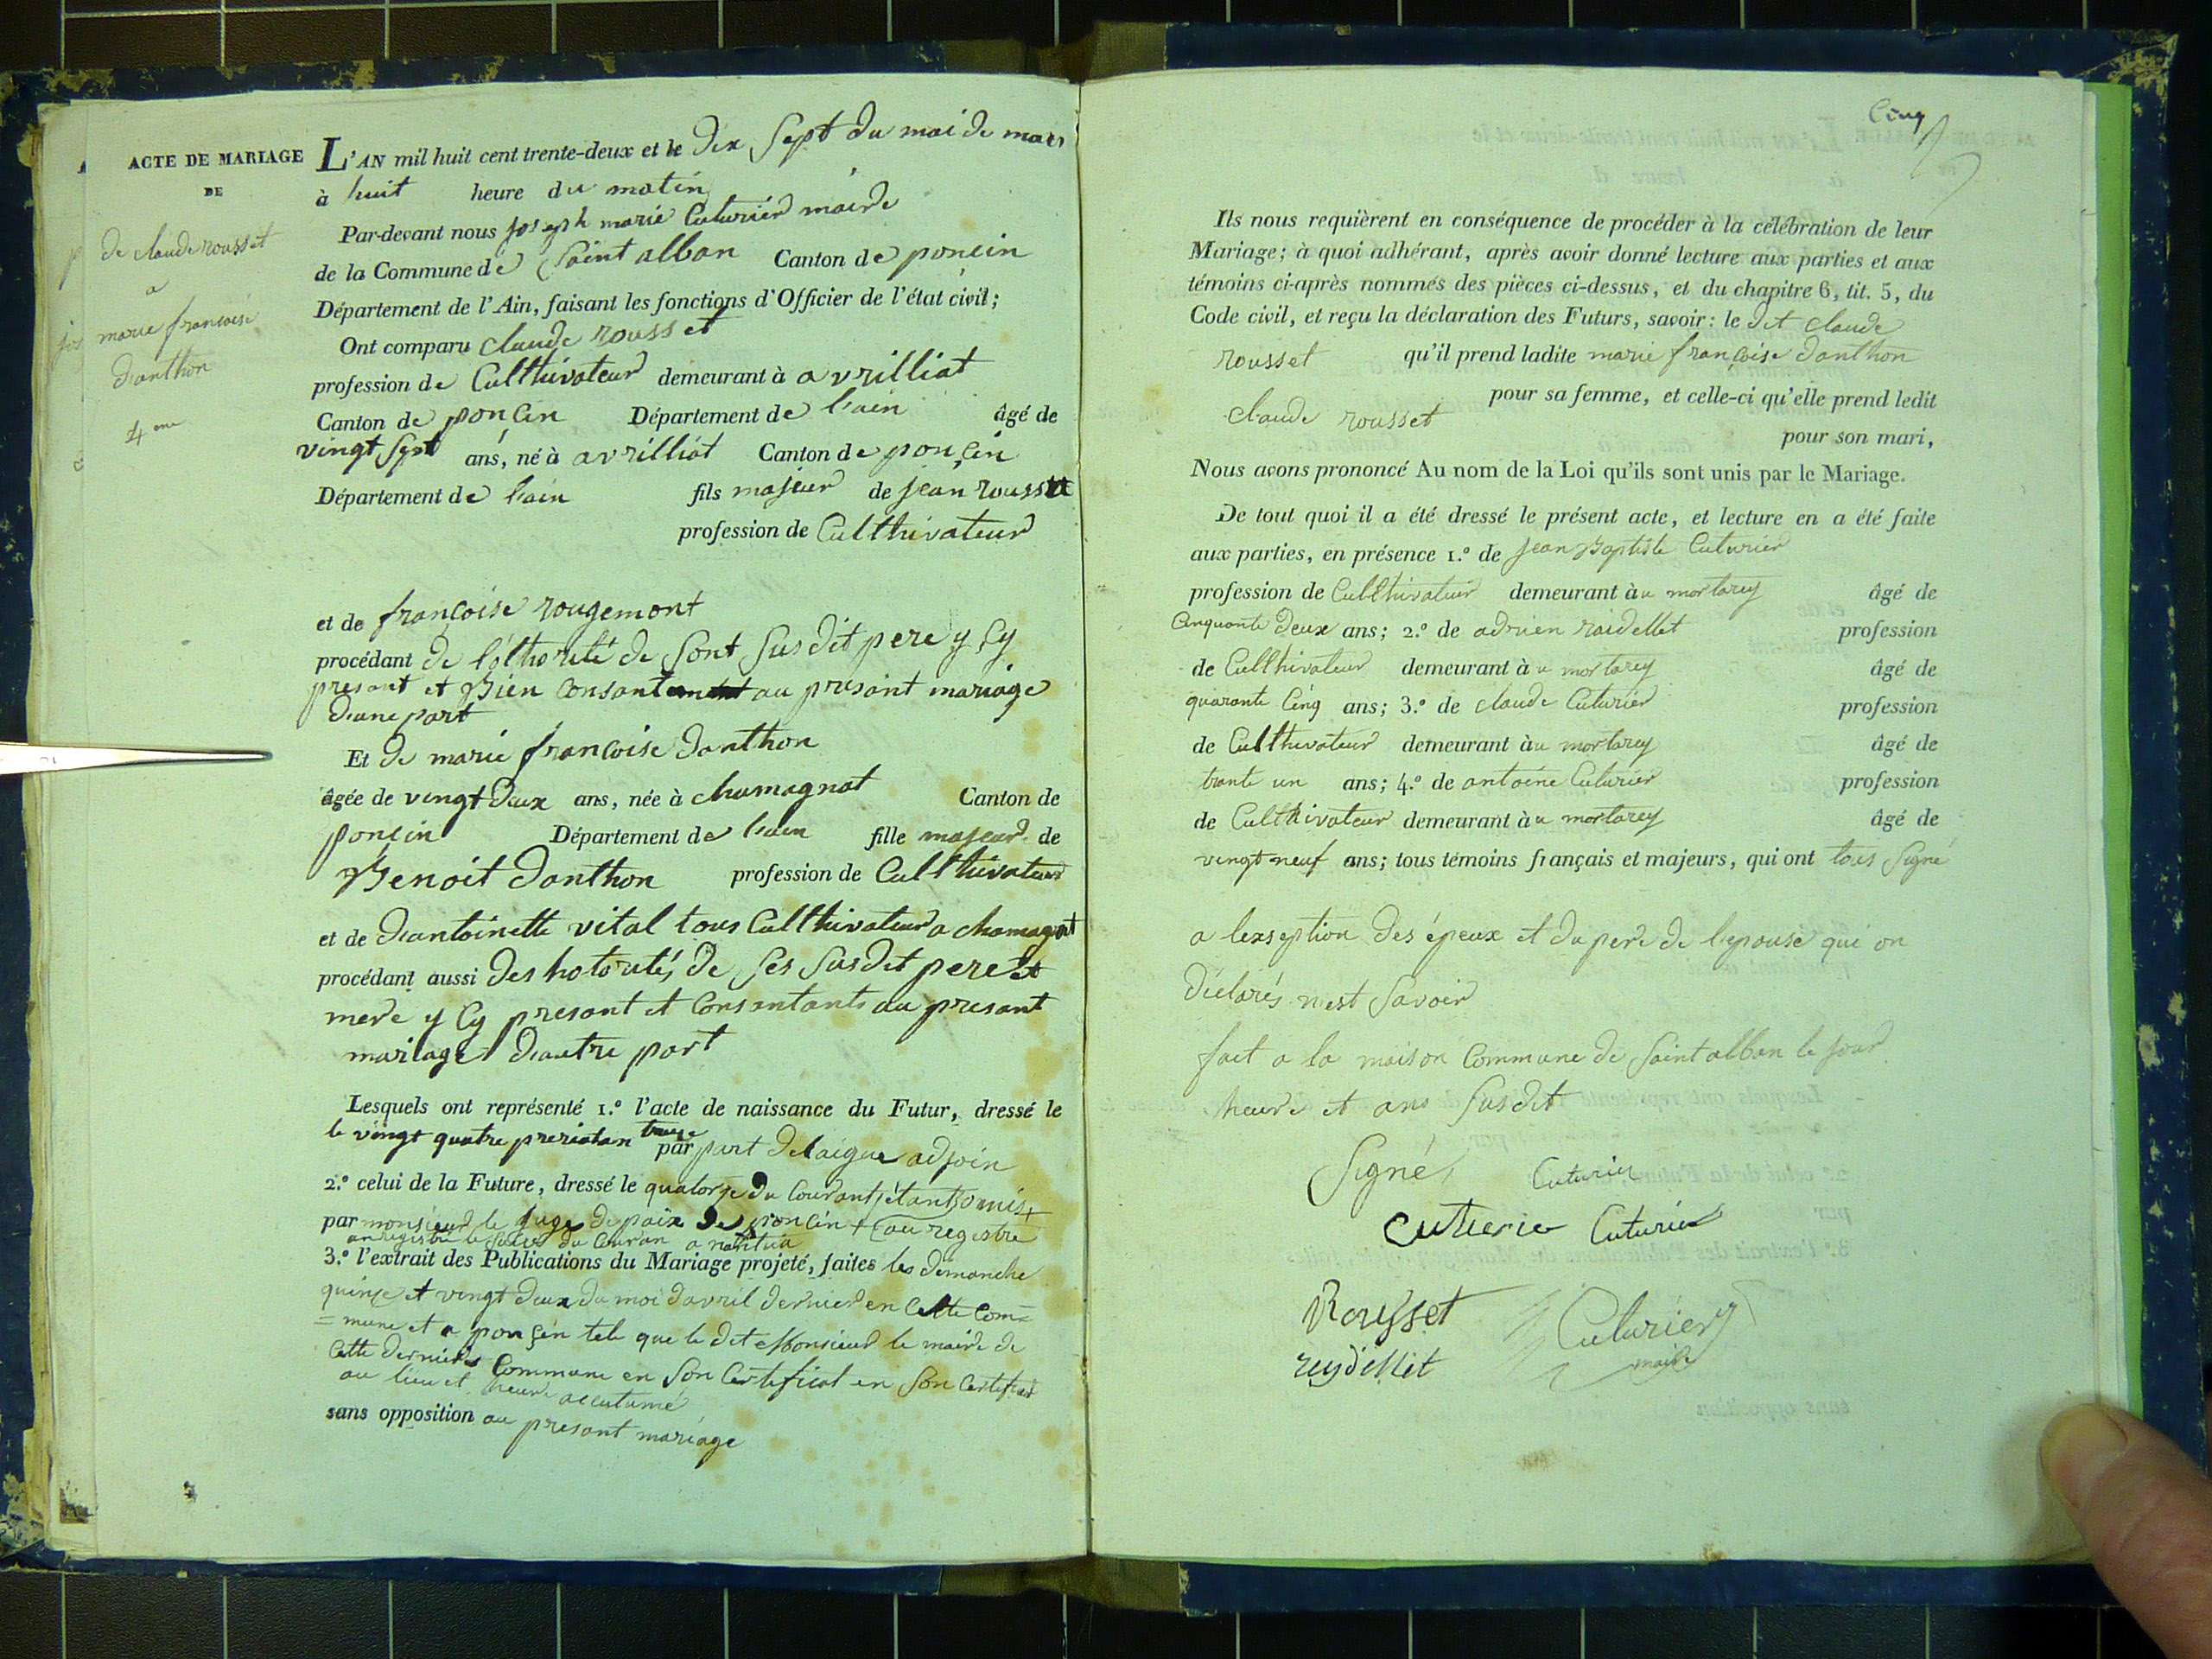 ACTE DE MARIAGE
DE
de claude rousset
a
marie francoise
danthon
4 me
L'AN mil huit cent trente-deux et le dix sept du moi de mars
à huit heure du matin
Par-devant nous joseph marie Cuturier maire
de la Commune de Saint alban Canton de poncin
Département de l'Ain, faisant les fonctions d'Officier de l'état civil;
Ont comparu claude rousset
profession de Culthivateur demeurant à avrilliat
Canton de poncin Département de l'ain âgé de
vingt sept ans, né à avrilliat Canton de poncin
Département de l'ain fils majeur de jean rousset
profession de Culthivateur
et de françoise rougemont
procédant de de sont susdit pere y cy
present et Bien consant au presant mariage
d'une part
Et de marie francoise danthon
âgée de vingt deux ans, née à chamagnat Canton de
poncin Département de l'ain fille majeur de
Benoit danthon profession de Culthivateur
et de d'antoinette vital tous Culthivateur a chamagnat
procédant aussi des hotorités de ses susdit pere et
mere y cy presant et consentants au presant
mariage d'autre part
Lesquels ont représenté 1.° l'acte de naissance du Futur, dressé le
le vingt quatre par delaigue adjoin
2.° celui de la Future, dressé le quatorze du Courant étant omis +
par monsieur le juge de paix de poncin + au registre
anregistré le du Couran a nantua
3.° l'extrait des Publications du Mariage projeté, faites les dimanche
quinze et vingt deux du moi d'avril dernier en Cette Com=
=mune et a poncin tele que le dit Monsieur le maire de
Cette derniere Commune en Son Certificat en Son Certificat
au lieu et heure accutumé
sans opposition au presant mariage
Cinq
5
Ils nous requièrent en conséquence de procéder à la célébration de leur
Mariage; à quoi adhérant, après avoir donné lecture aux parties et aux
témoins ci-après nommés des pièces ci-dessus, et du chapitre 6, tit. 5, du
Code civil, et reçu la déclaration des Futurs, savoir: le dit claude
rousset qu'il prend ladite marie françoise danthon
pour sa femme, et celle-ci qu'elle prend ledit
claude rousset
pour son mari,
Nous avons prononcé Au nom de la Loi qu'ils sont unis par le Mariage.
De tout quoi il a été dressé le présent acte, et lecture en a été faite
aux parties, en présence 1.° de jean Baptiste Cuturier
profession de Culthivateur demeurant à u mortarey âgé de
Cinquante deux ans; 2.° de adrien raidellet profession
de Culthivateur demeurant à u mortarey âgé de
quarante Cinq ans; 3.° de claude Cuturier profession
de Culthivateur demeurant à u mortarey âgé de
trante un ans; 4.° de antoine Cuturier profession
de Culthivateur demeurant à u mortarey âgé de
vingt neuf ans; tous témoins français et majeurs, qui ont tous Signé
a lexseption des épeux et du pere de l'epouse qui on
déclarés n'est Savoir
fait a la maison Commune de Saint alban le jour
heure et ans Susdit
Signé, Cuturier
Cuturier
Rousset Cuturier
reydellet maire